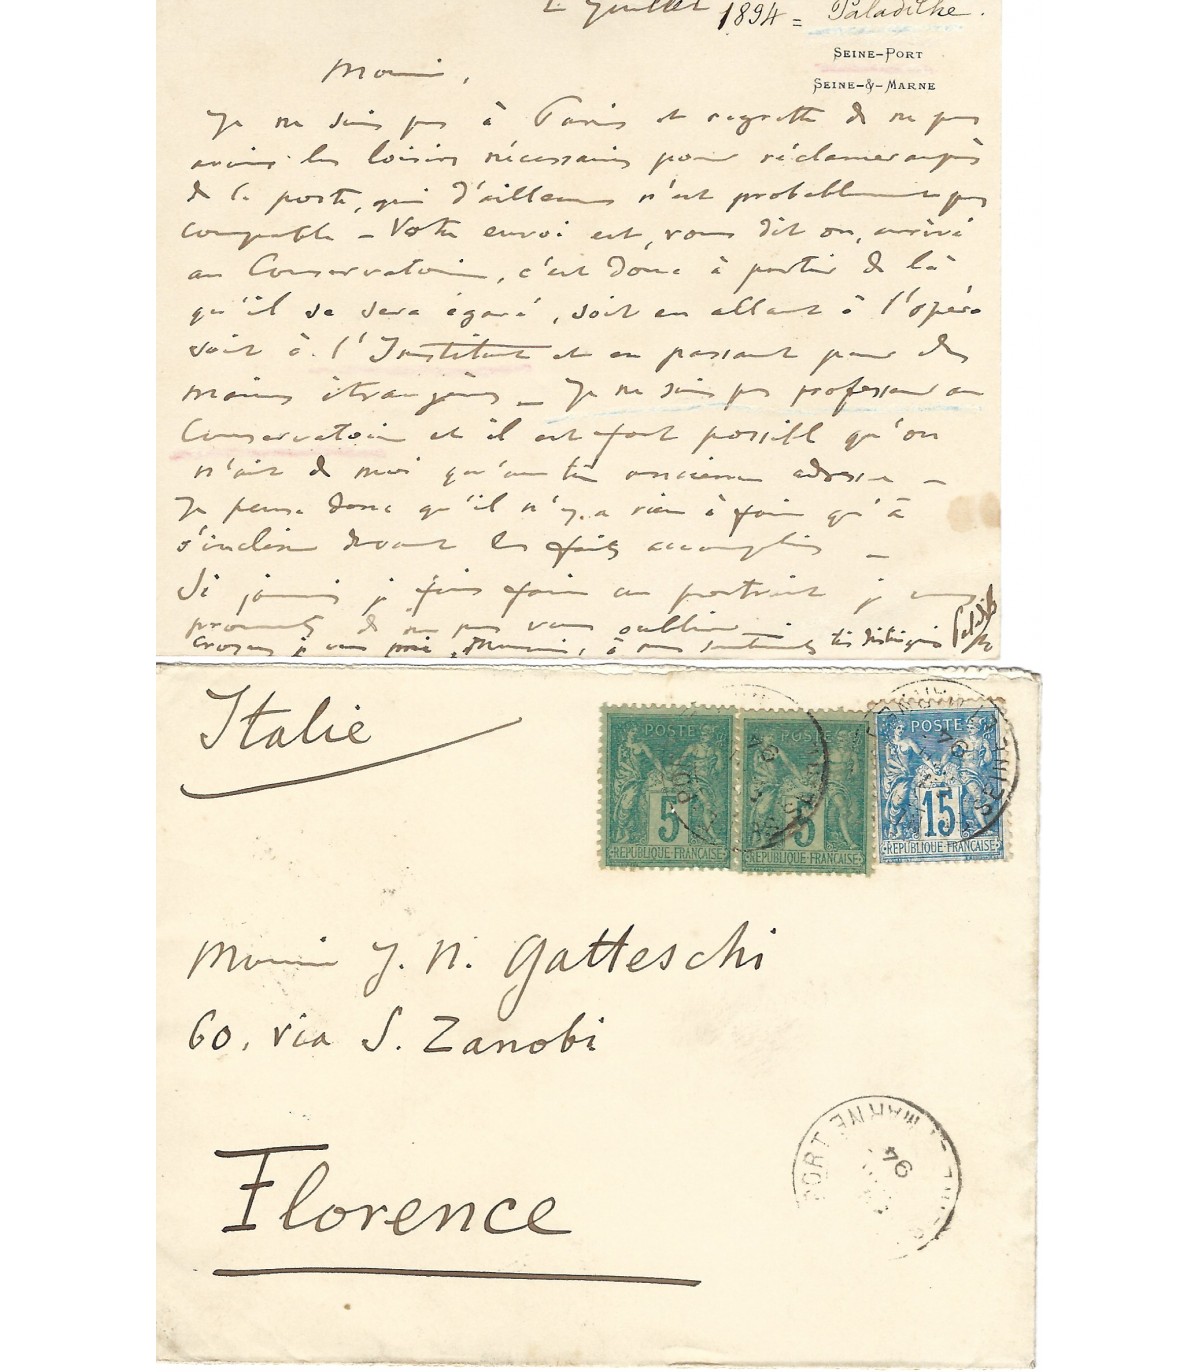 2 Juillet 1894 = Paladilhe.
SEINE-PORT
SEINE-&-MARNE
Monsieur,
Je ne suis pas à Paris et regrette de ne pas
avoir les loisirs nécessaires pour réclamer auprès
de la poste, qui d'ailleurs n'est probablement pas
coupable – Votre envoi est, vous dit on, arrivé
au Conservatoire, c'est donc à partir de là
qu'il se sera égaré, soit en allant à l'opéra
soit à l'Institut et en passant par des
mains étrangères – Je ne suis pas professeur au
Conservatoire et il est fort possible qu'on
n'ait de moi qu'une ancienne adresse –
Je pense donc qu'il n'y a rien à faire qu'à
s'incliner devant les faits accomplis –
Si jamais je fais faire un portrait je vous
promets de ne pas vous oublier
Croyez je vous prie, Monsieur, à mes sentiments très distingués
Paladilhe
Italie
POSTE
5
REPUBLIQUE FRANÇAISE
POSTE
5
REPUBLIQUE FRANÇAISE
POSTE
15
REPUBLIQUE FRANÇAISE
Monsieur J. N. Gatteschi
60, via S. Zanobi
Florence
PORT
MARNE
94